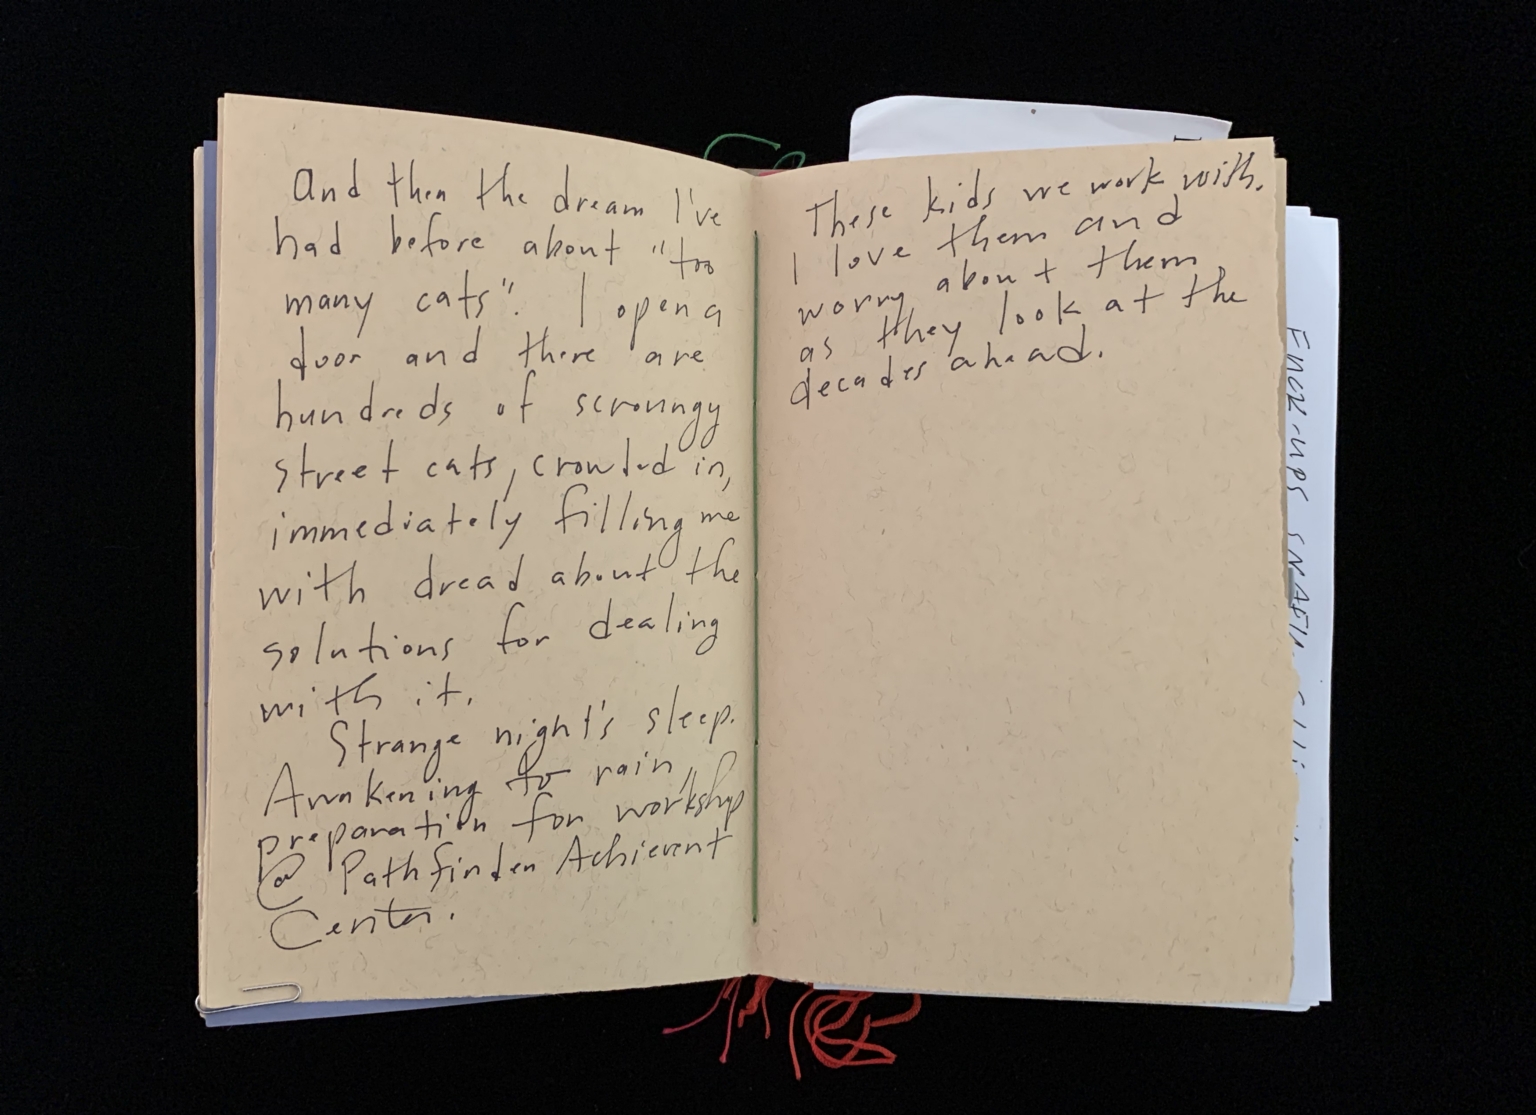 And then the dream I've
had before about "too
many cats". I open a
door and there are
hundreds of scroungy
street cats, crowded in,
immediately filling me
with dread about the
solutions for dealing
with it.
Strange night's sleep.
Awakening to rain,
preparation for workshop
@ Pathfinder Achievent
Center.
These kids we work with.
I love them and
worry about them
as they look at the
decades ahead.
Fuck-ups SNAFU